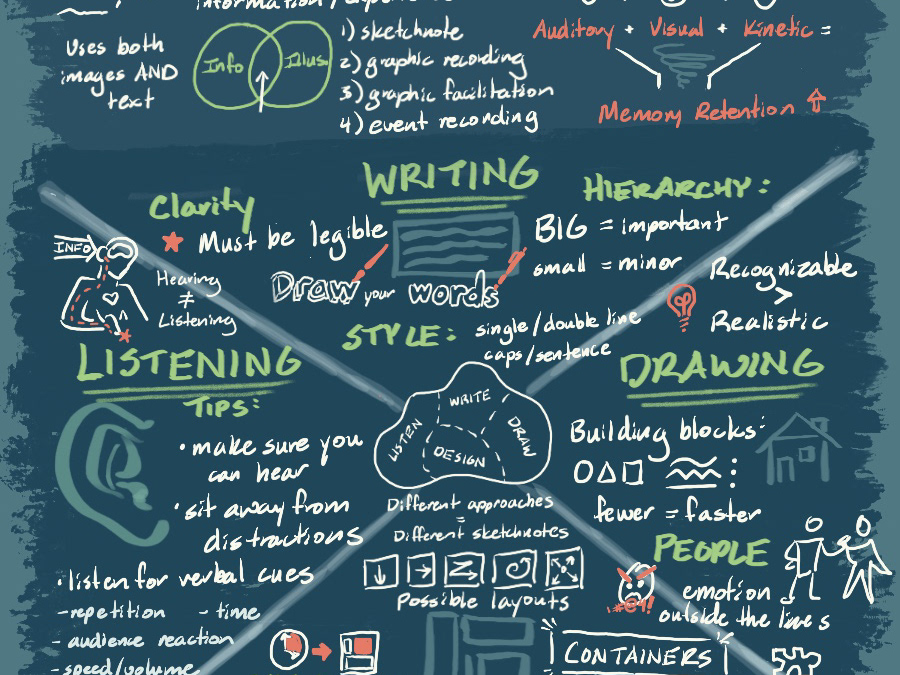 information/
Uses both
images AND
text
Info
Illus
1) sketchnote
2) graphic recording
3) graphic facilitation
4) event recording
Auditory + Visual + Kinetic =
Memory Retention
WRITING
Clarity
Must be legible
Draw your words
STYLE: single/double line
caps/sentence
HIERARCHY:
BIG = important
small = minor
INFO
Hearing
≠
Listening
LISTENING
TIPS:
• make sure you
can hear
• sit away from
distractions
• listen for verbal cues
- repetition - time
- audience reaction
- speed/volume
LISTEN
WRITE
DRAW
DESIGN
Different approaches
=
Different sketchnotes
Possible layouts
Recognizable
>
Realistic
DRAWING
Building blocks:
fewer = faster
PEOPLE
emotion
outside the lines
CONTAINERS